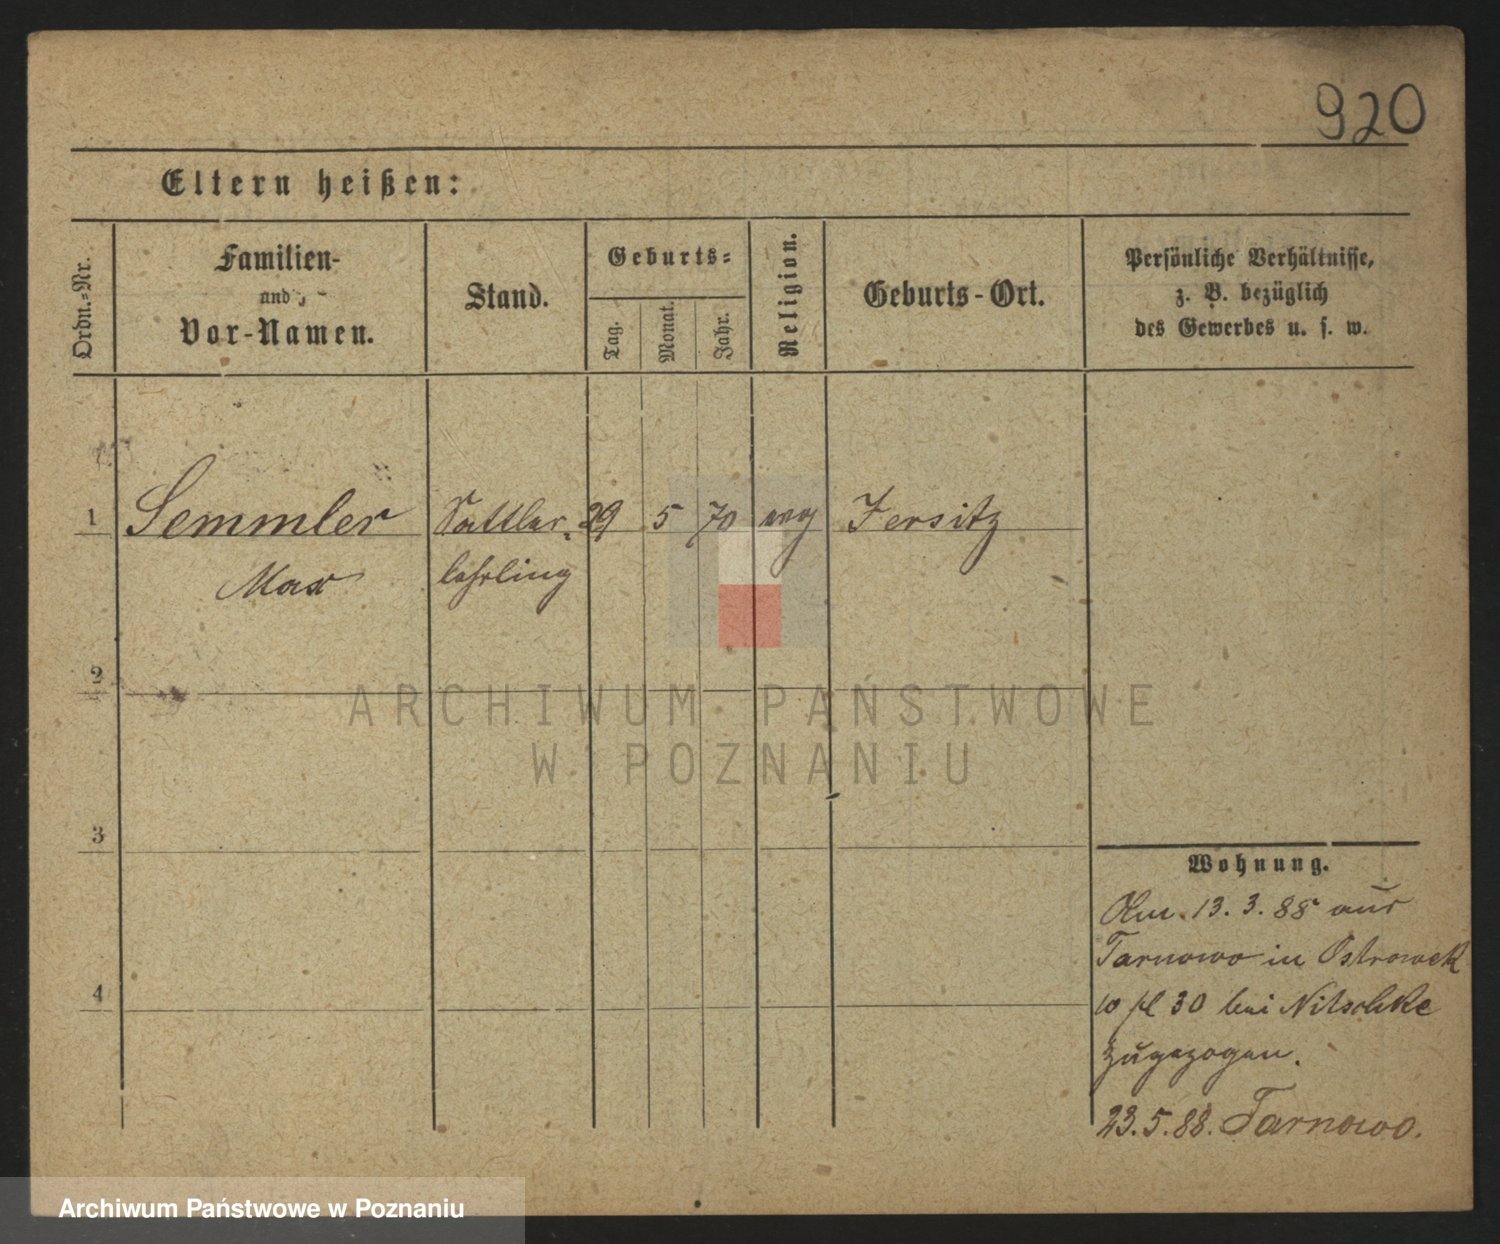 920
Eltern heißen:
Ordn.=Nr.
Familien-
und
Vor-Namen.
Stand.
Geburts=
Tag.
Monat.
Jahr.
Religion.
Geburts-Ort.
Persönliche Verhältnisse,
z. B. bezüglich
des Gewerbes u. s. w.
1 Semmler Sattler- 29 5 70 evg Jersitz
Max lehrling
2
3
4
Wohnung.
Am 13.3.88 aus
Tarnowo in Ostrowek
30 bei Nitschke
zugezogen.
23.5.88. Tarnowo.
ARCHIWUM PAŃSTWOWE
W POZNANIU
Archiwum Państwowe w Poznaniu